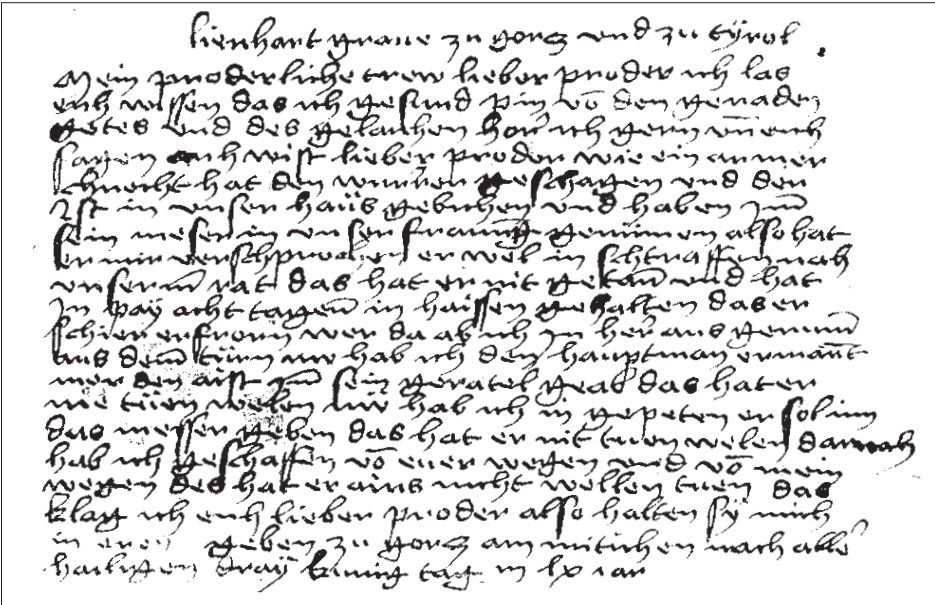 lienhart graue zu gorz vnd zu tyrol
Mein pruderliche trew lieber pruder ich las
euh wissen das ich gesund pin vō den genaden
gotes vnd des gelaichen hor ich gern vō euch
sagen euh wist lieber pruder wie ein armer
hat den geschagen vnd den
Ist in vnser haüs gebichen vnd haben Im̄
sein meser in vnser genūmen also hat
er mir verschprochen er wel in schtraffen nah
vnserm̄ rat das hat er nit getan̄ vnd hat
In pay acht tagen̄ in haissen gehalten das er
schier erfrorn wer da ab ich In heraus genum̄
aus dem̄ türn nw hab ich den hauptman ermant
sein das hat er
nie tüen welen nw hab ich in gepeten er sol im
das messer geben das hat er nit tuen welen darnah
hab ich geschaffen vō euer wegen vnd vō mein
wegen des hat er ains nicht wellen tuen das
klag ich euh lieber pruder also halten sy mich
in eren geben zu gorz am mitichen nach aller
hailigen dray kunig tag in lx iar